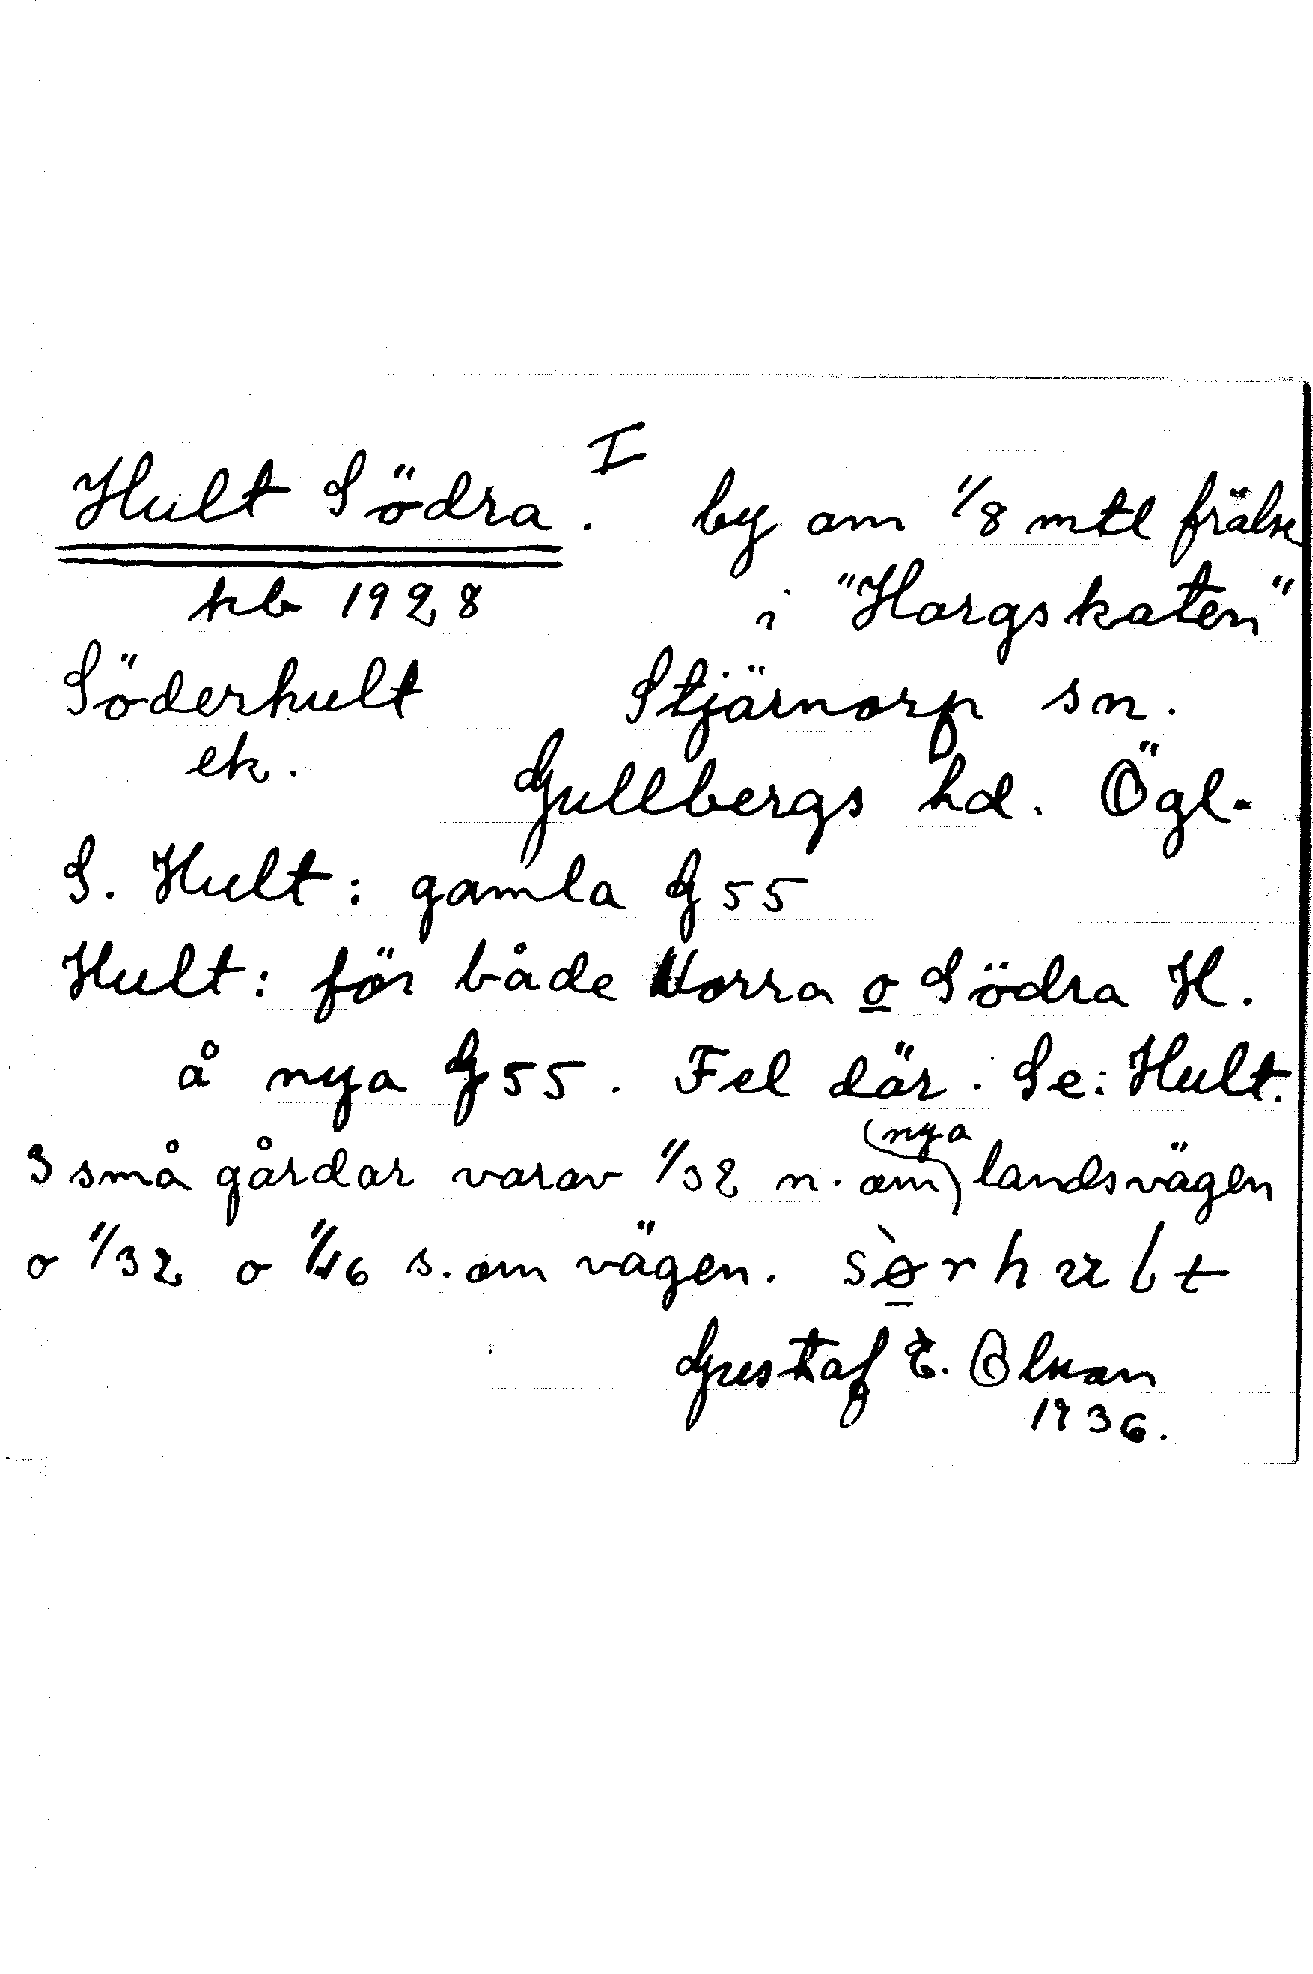 Hult Södra. I by om 1/8 mtl frälse
kb 1928 i "Hargskaten"
Söderhult Stjärnorp sn.
ek. Gullbergs hd. Ögl.
S. Hult: gamla G 55
Hult: för både Norra o Södra H.
å nya G 55. Fel där. Se: Hult.
3 små gårdar varav 1/32 n. om (nya) landsvägen
o 1/32 o 1/16 s. om vägen. sørhult
Gustaf E. Olsson
1936.